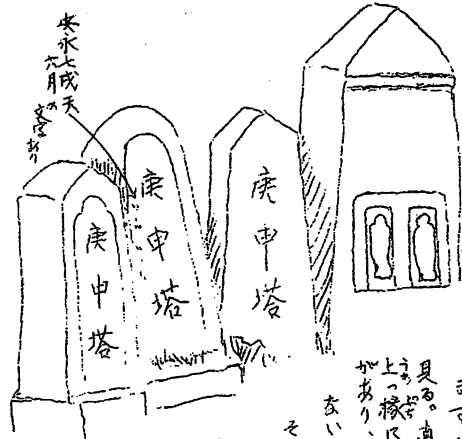 安永七戌天
六月の
文字あり
庚申塔
庚申塔
庚申塔
見る。真
上っ縁に
があり、
ない
そ